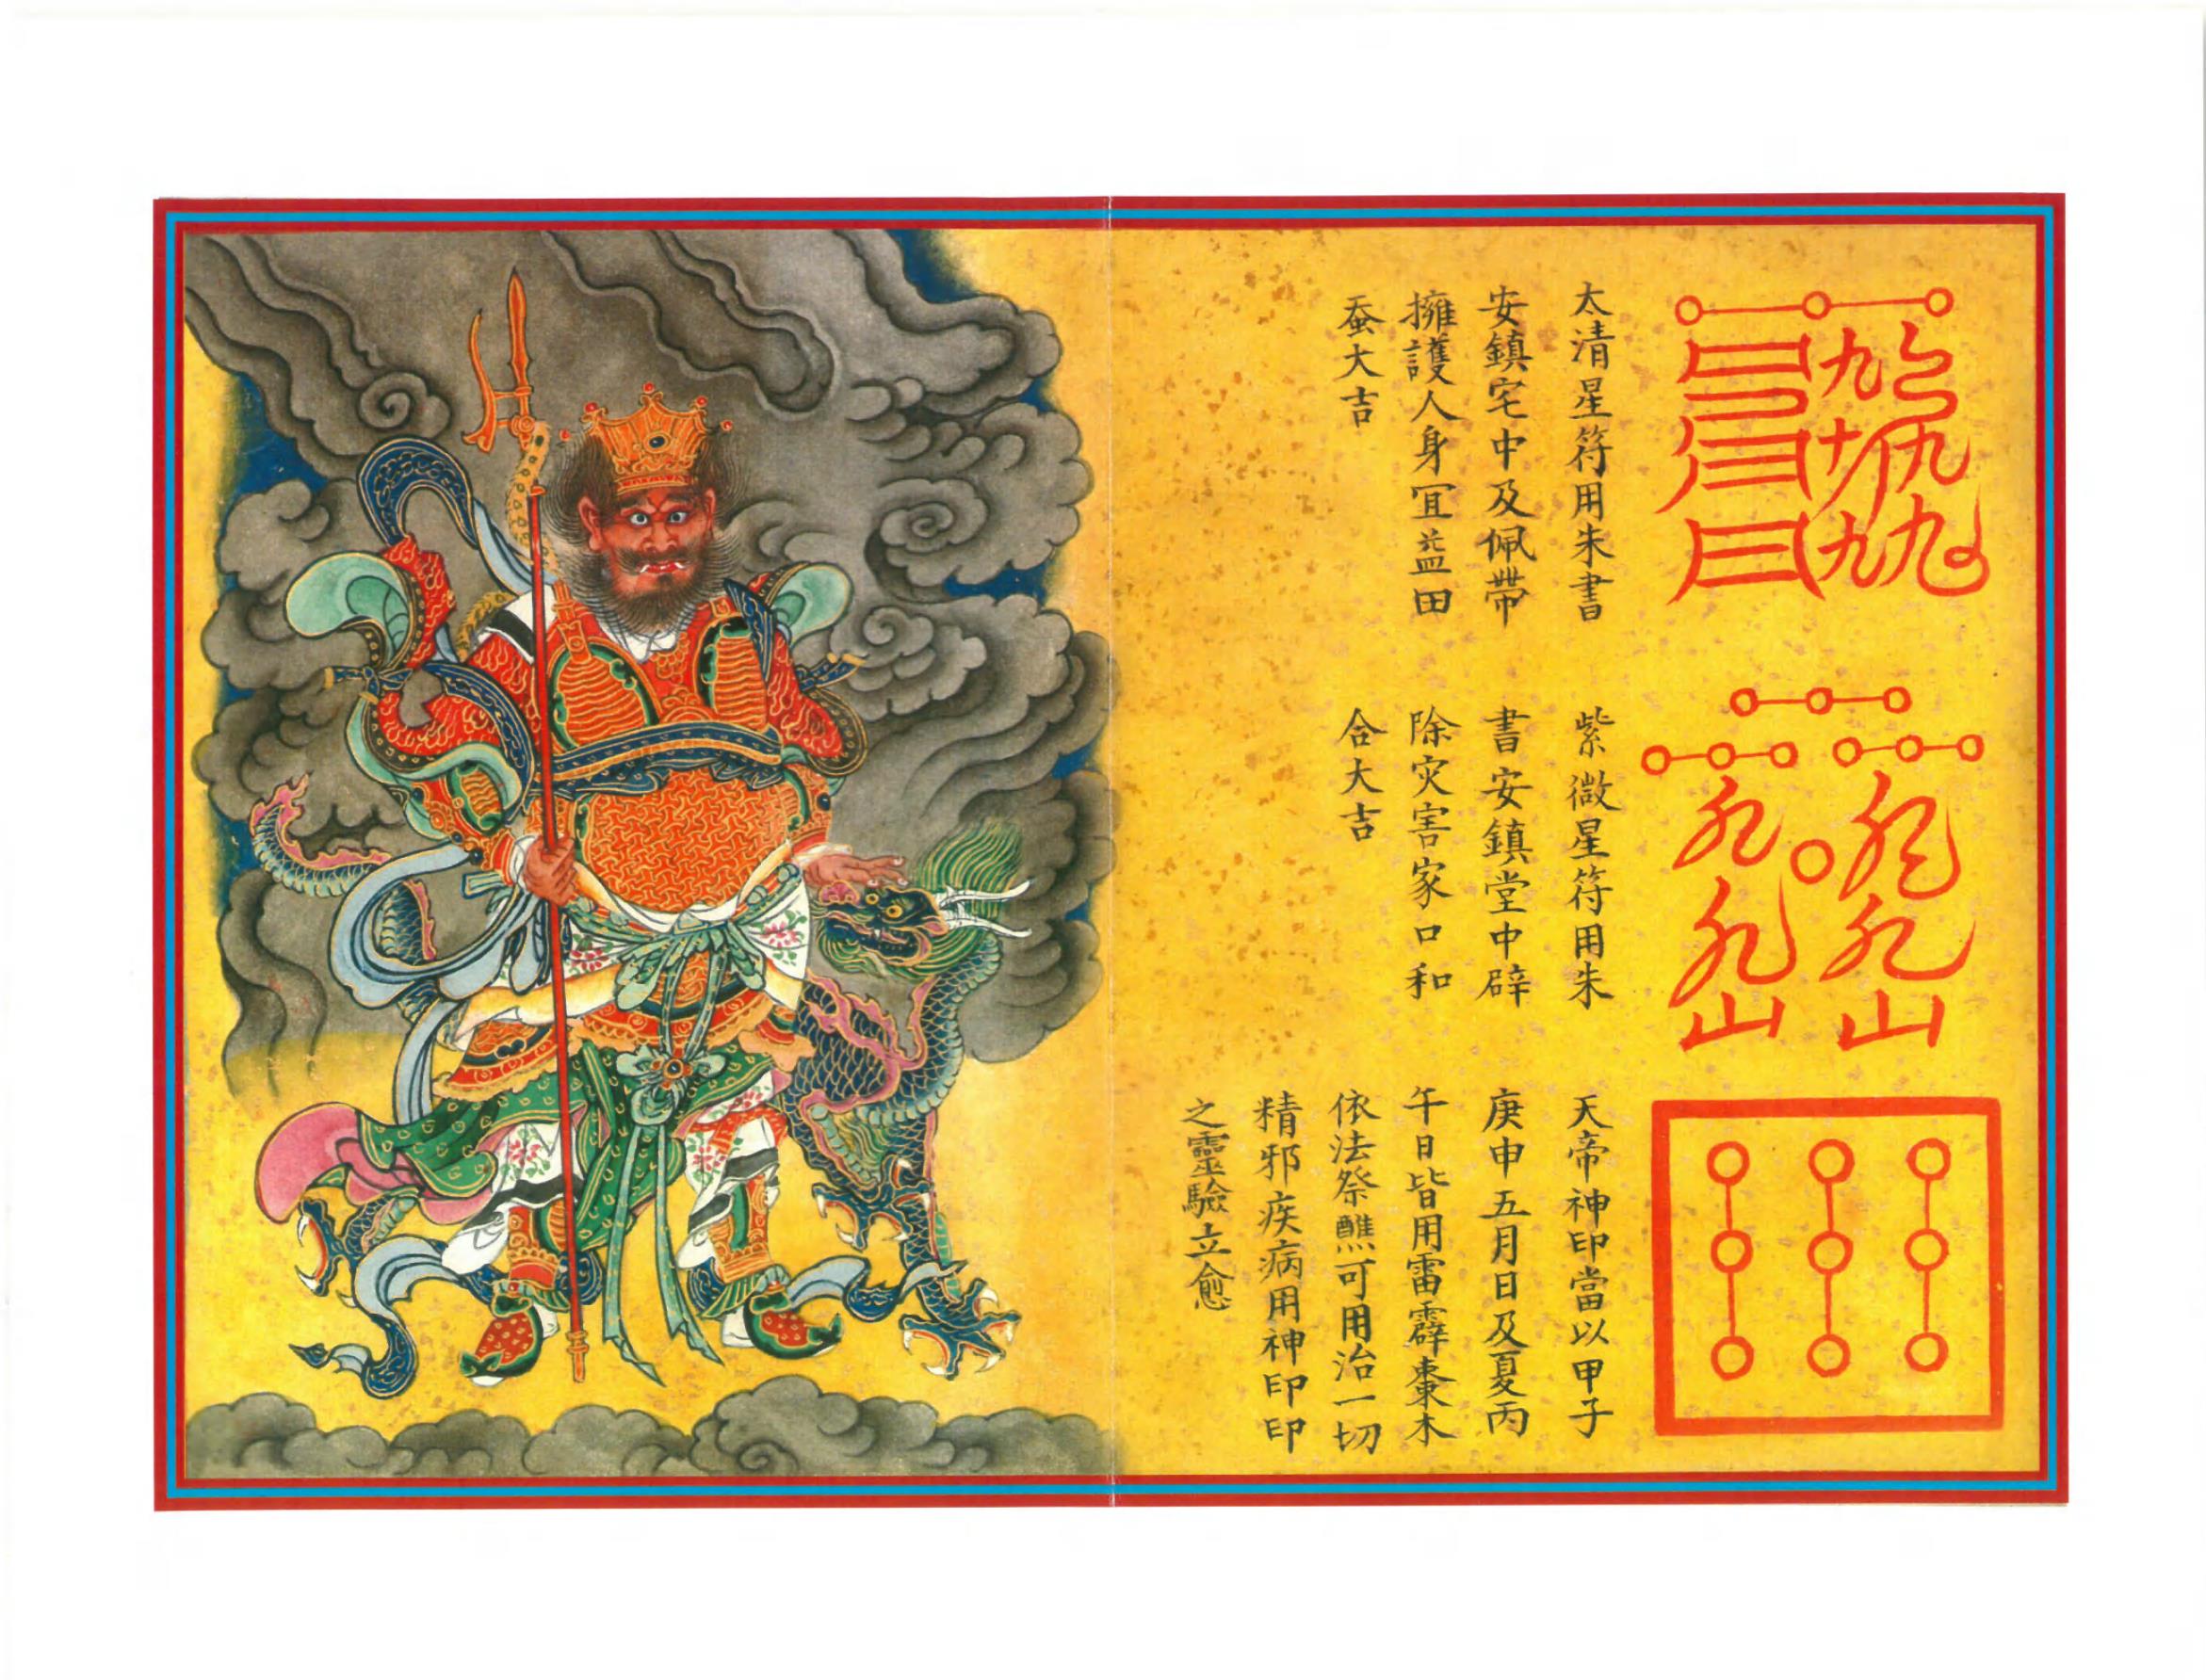 太清星符用朱書
安鎮宅中及佩帶
擁護人身冝益田
蚕大吉
紫微星符用朱
書安鎮堂中辟
除灾害家口和
合大吉
天帝神印當以甲子
庚申五月日及夏丙
午日皆用雷霹棗木
依法祭醮可用治一切
精邪疾病用神印印
之靈驗立愈